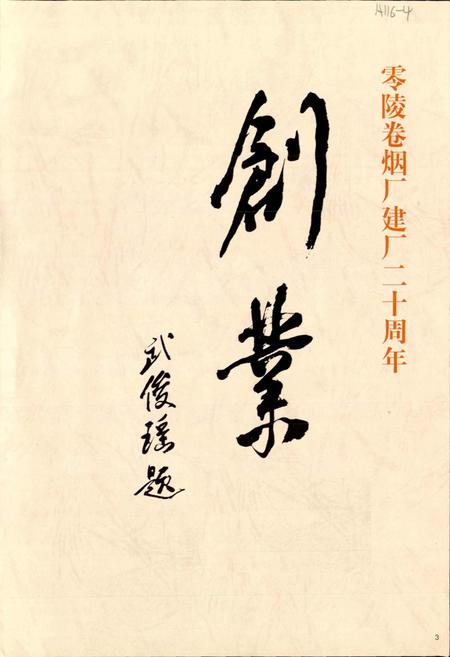 A116-4
零陵卷烟厂建厂二十周年
創業
武俊瑶題
3